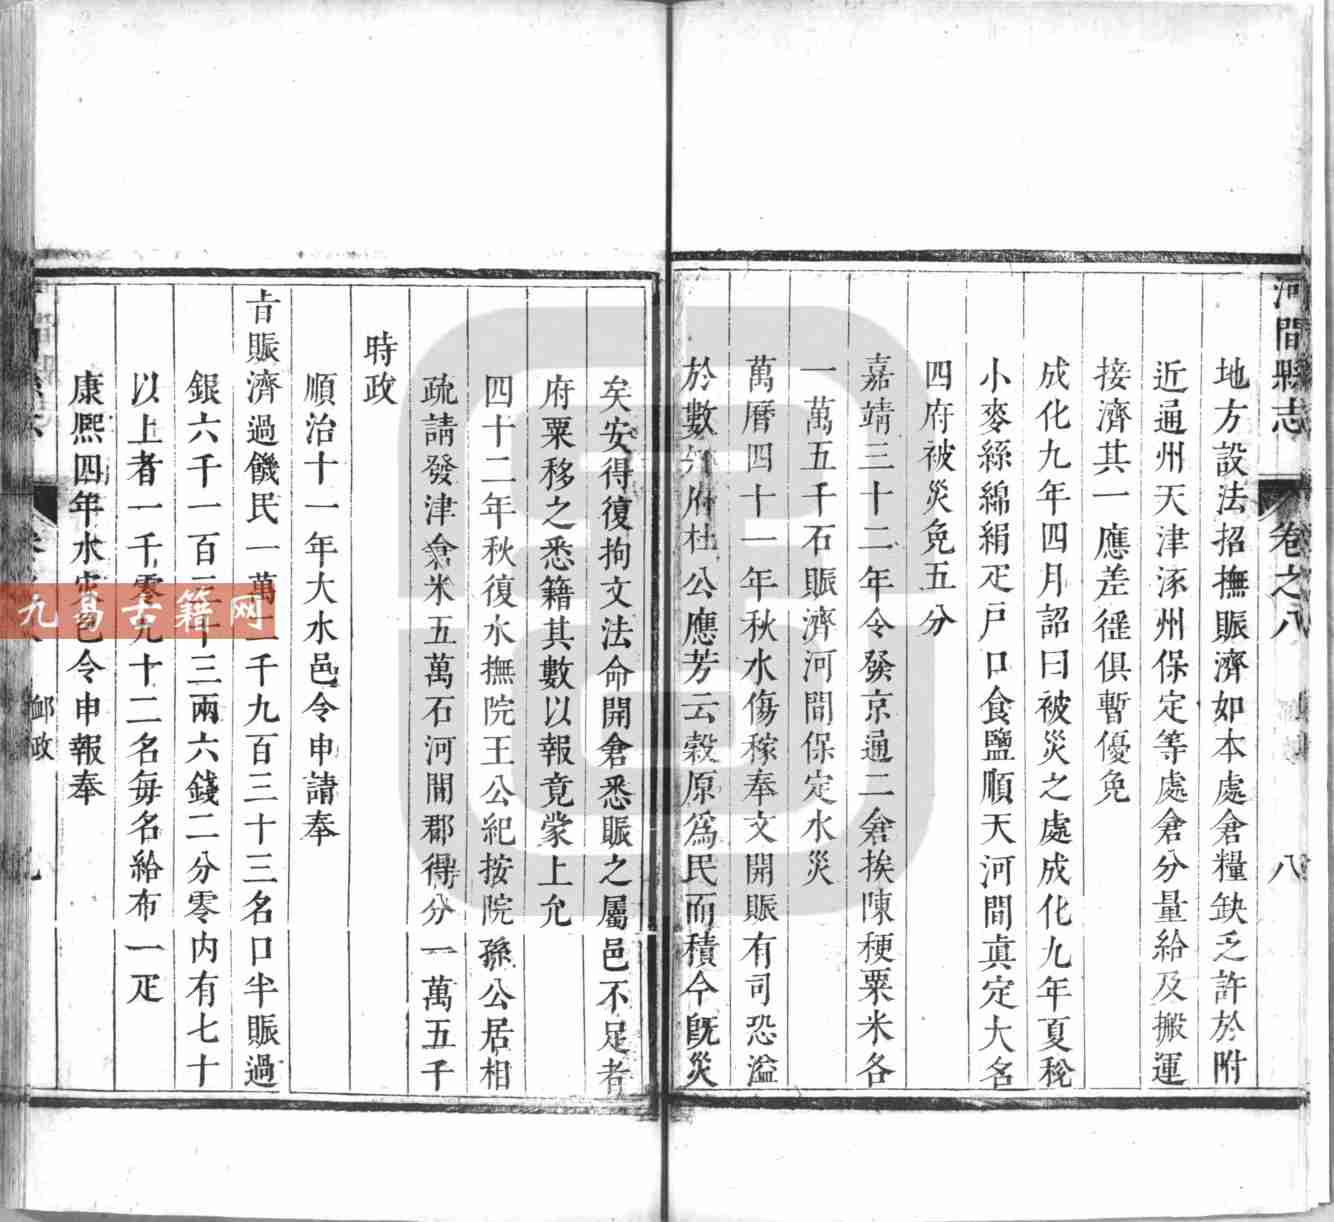 河間縣志
卷之八
八
地方設法招撫賑濟如本處倉糧缺乏許於附
近通州天津涿州保定等處倉分量給及搬運
接濟其一應差徭俱暫優免
成化九年四月詔曰被災之處成化九年夏稅
小麥絲綿絹疋戶口食鹽順天河間真定大名
四府被災免五分
嘉靖三十二年令發京通二倉挨陳粳粟米各
一萬五千石賑濟河間保定水災
萬曆四十一年秋水傷稼奉文開賑有司恐溢
於數知府杜公應芳云穀原為民而積今旣災
矣安得復拘文法命開倉悉賑之屬邑不足者
府粟移之悉籍其數以報竟蒙上允
四十二年秋復水撫院王公紀按院孫公居相
疏請發津倉米五萬石河間郡得分一萬五千
時政
順治十一年大水邑令申請奉
旨賑濟過饑民一萬二千九百三十三名口半賑過
銀六千一百三十三兩六錢二分零內有七十
以上者一千零九十二名每名給布一疋
康熙四年水災邑令申報奉
卹政
九
九易古籍网